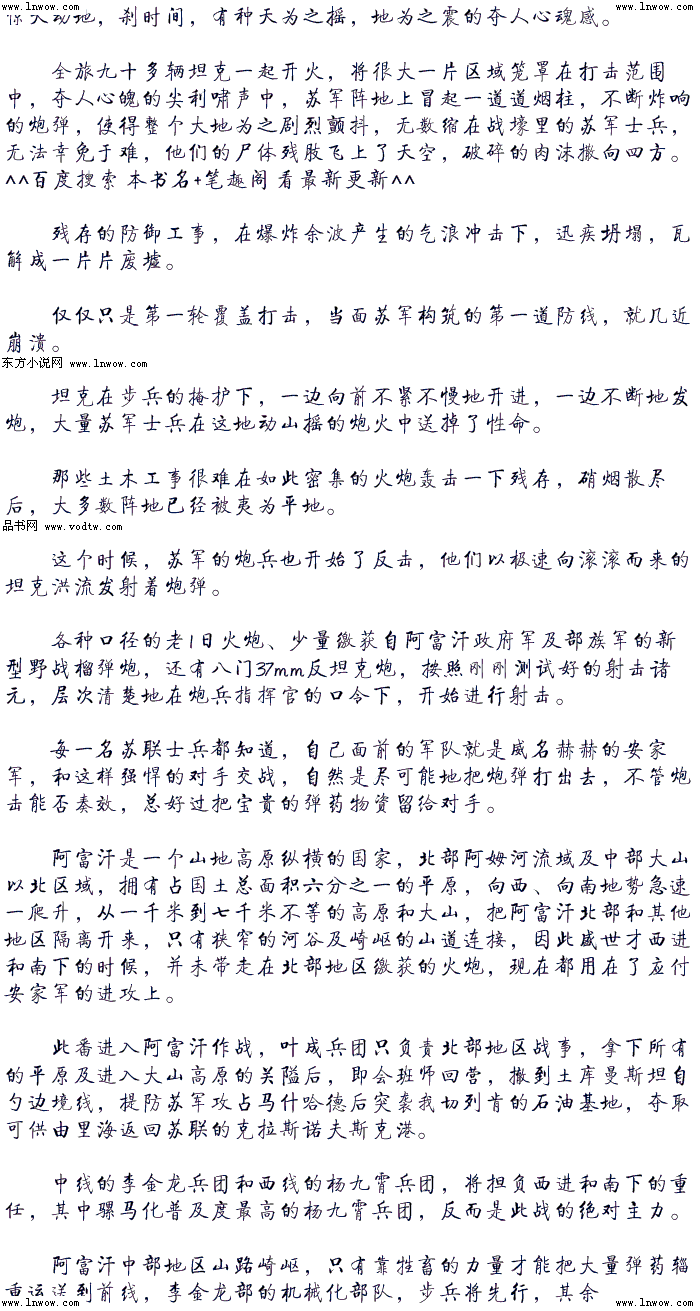 www.lnwow.com www.lnwow.com
惊天动地，刹时间，有种天为之摇，地为之震的夺人心魂感。
全旅九十多辆坦克一起开火，将很大一片区域笼罩在打击范围
中，夺人心魄的尖利啸声中，苏军阵地上冒起一道道烟柱，不断炸响
的炮弹，使得整个大地为之剧烈颤抖，无数缩在战壕里的苏军士兵，
无法幸免于难，他们的尸体残肢飞上了天空，破碎的肉沫撒向四方。
^^百度搜索 本书名+笔趣阁 看最新更新^^
残存的防御工事，在爆炸余波产生的气浪冲击下，迅疾坍塌，瓦
解成一片片废墟。
仅仅只是第一轮覆盖打击，当面苏军构筑的第一道防线，就几近
崩溃。
东方小说网 www.lnwow.com
坦克在步兵的掩护下，一边向前不紧不慢地开进，一边不断地发
炮，大量苏军士兵在这地动山摇的炮火中送掉了性命。
那些土木工事很难在如此密集的火炮轰击一下残存，硝烟散尽
后，大多数阵地已经被夷为平地。
品书网 www.vodtw.com
这个时候，苏军的炮兵也开始了反击，他们以极速向滚滚而来的
坦克洪流发射着炮弹。
各种口径的老旧火炮、少量缴获自阿富汗政府军及部族军的新
型野战榴弹炮，还有八门37mm反坦克炮，按照刚刚测试好的射击诸
元，层次清楚地在炮兵指挥官的口令下，开始进行射击。
每一名苏联士兵都知道，自己面前的军队就是威名赫赫的安家
军，和这样强悍的对手交战，自然是尽可能地把炮弹打出去，不管炮
击能否奏效，总好过把宝贵的弹药物资留给对手。
阿富汗是一个山地高原纵横的国家，北部阿姆河流域及中部大山
以北区域，拥有占国土总面积六分之一的平原，向西、向南地势急速
一爬升，从一千米到七千米不等的高原和大山，把阿富汗北部和其他
地区隔离开来，只有狭窄的河谷及崎岖的山道连接，因此盛世才西进
和南下的时候，并未带走在北部地区缴获的火炮，现在都用在了应付
安家军的进攻上。
此番进入阿富汗作战，叶成兵团只负责北部地区战事，拿下所有
的平原及进入大山高原的关隘后，即会班师回营，撤到土库曼斯坦自
勺边境线，提防苏军攻占马什哈德后突袭我切列肯的石油基地，夺取
可供由里海返回苏联的克拉斯诺夫斯克港。
中线的李金龙兵团和西线的杨九霄兵团，将担负西进和南下的重
任，其中骡马化普及度最高的杨九霄兵团，反而是此战的绝对主力。
阿富汗中部地区山路崎岖，只有靠牲畜的力量才能把大量弹药辎
重运送到前线，李金龙部的机械化部队，步兵将先行，其余
www.lnwow.com www.lnwow.com